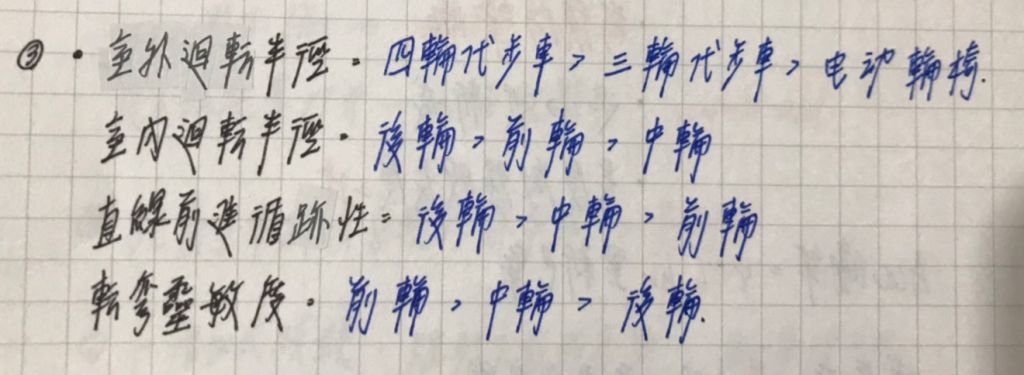 ③ • 室外迴転半徑。四輪代步車 > 三輪代步車 > 电动輪椅.
室內迴転半徑。後輪 > 前輪 > 中輪
直線前進循跡性= 後輪 > 中輪 > 前輪
転彎靈敏度。前輪 > 中輪 > 後輪.